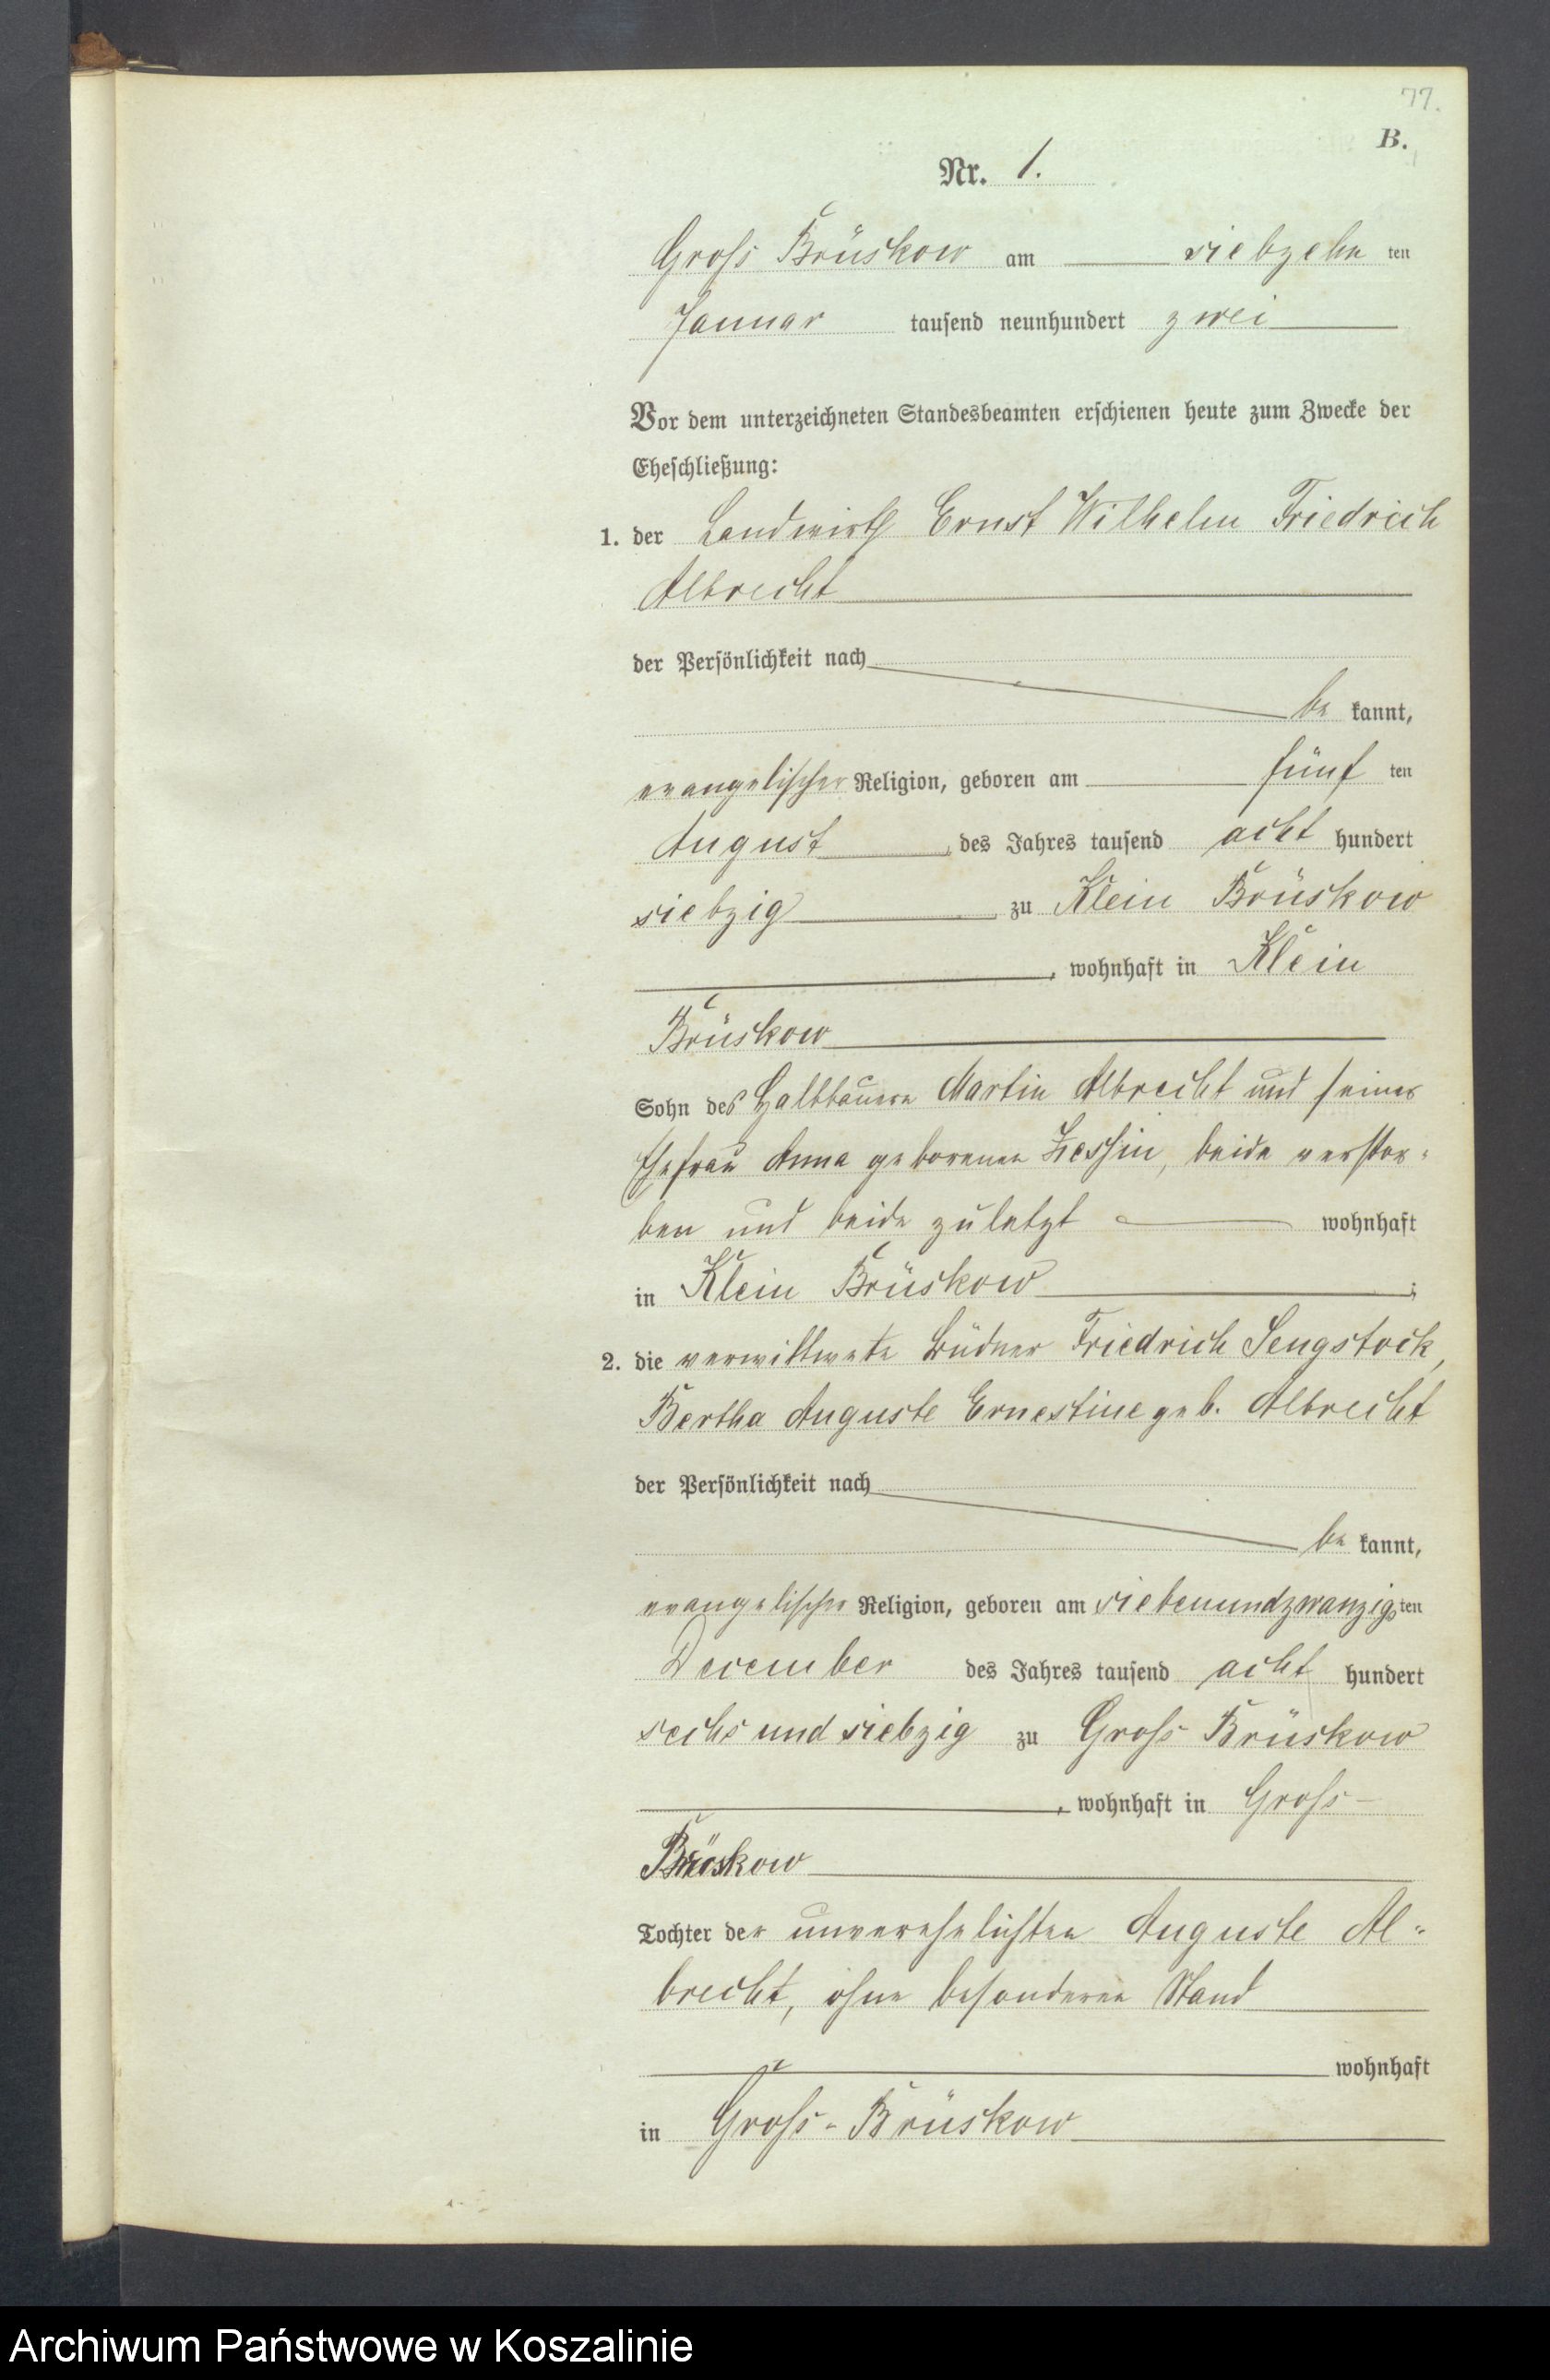 77.
B.
Nr. 1.
Gross Brüskow am siebzehn ten
Januar tausend neunhundert zwei
Vor dem unterzeichneten Standesbeamten erschienen heute zum Zwecke der
Eheschließung:
1. der Landwirth Ernst Wilhelm Friedrich
Albrecht
der Persönlichkeit nach
be kannt,
evangelischer Religion, geboren am fünf ten
August des Jahres tausend acht hundert
siebzig zu Klein Brüskow
, wohnhaft in Klein
Brüskow
Sohn des Halbbauern Martin Albrecht und seiner
Ehefrau Anna geborenen Zessin, beide verstor-
ben und beide zuletzt wohnhaft
in Klein Brüskow ;
2. die verwittwete Büdner Friedrich Sengstock,
Bertha Auguste Ernestine geb. Albrecht
der Persönlichkeit nach
be kannt,
evangelischer Religion, geboren am siebenundzwanzigsten
December des Jahres tausend acht hundert
sechs und siebzig zu Gross Brüskow
, wohnhaft in Gross-
Brüskow
Tochter der unverehelichten Auguste Al-
brecht, ohne besonderen Stand
wohnhaft
in Gross-Brüskow
Archiwum Państwowe w Koszalinie